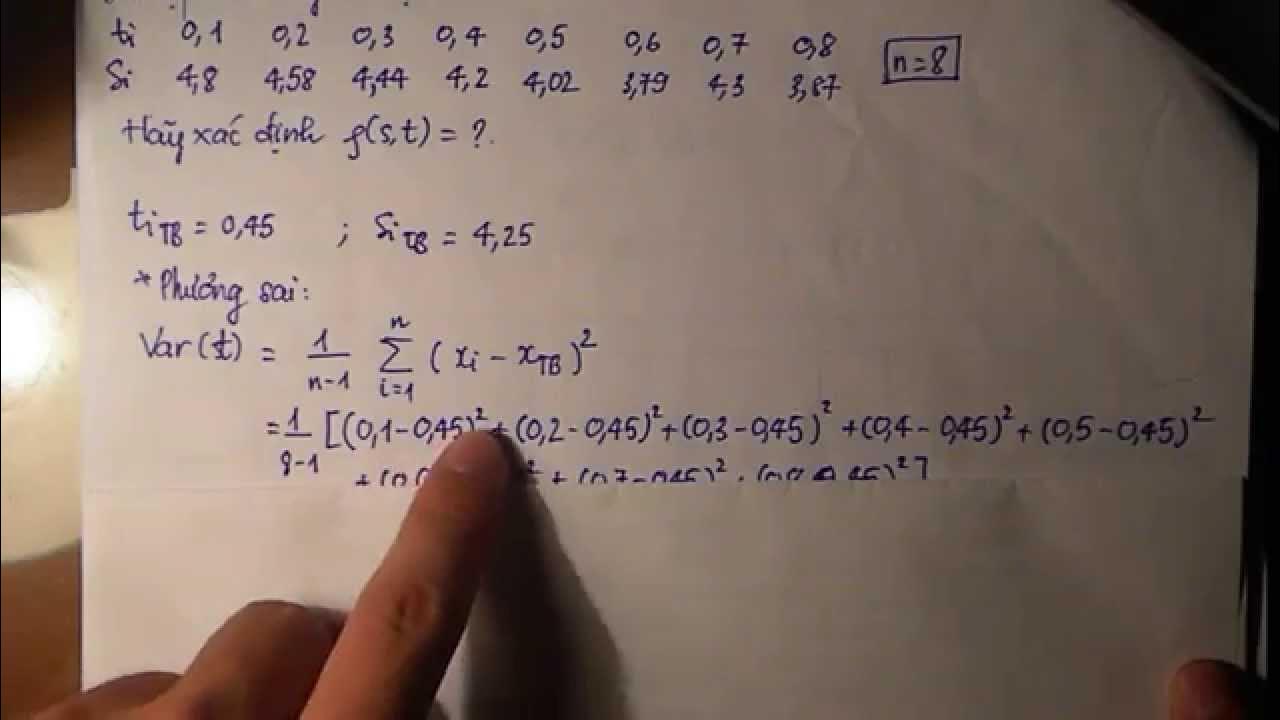 ti 0,1 0,2 0,3 0,4 0,5 0,6 0,7 0,8
Si 4,8 4,58 4,44 4,2 4,02 3,79 4,3 3,87
n=8
Hãy xác định ρ(s,t) = ?
tiTB = 0,45 ; SiTB = 4,25
* Phương sai:
Var(t) = 1/(n-1) Σ(i=1 → n) (xi - xTB)²
= 1/(8-1) [(0,1-0,45)² + (0,2-0,45)² + (0,3-0,45)² + (0,4-0,45)² + (0,5-0,45)²